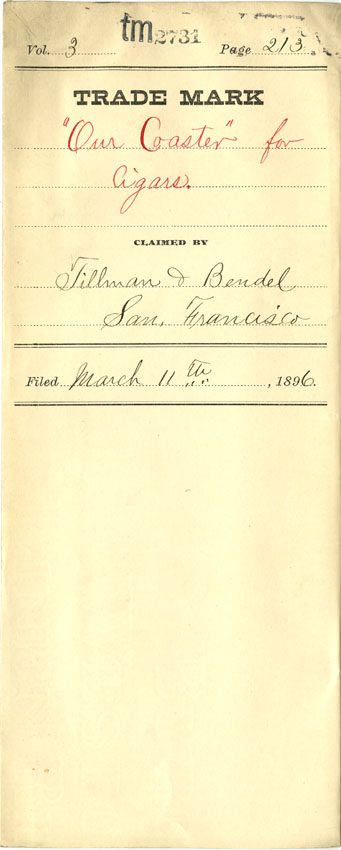 tm 2731
Vol. 3 Page 213
TRADE MARK
"Our Coaster" for
Cigars.
CLAIMED BY
Tillman & Bendel
San, Francisco
Filed March 11th, 1896.